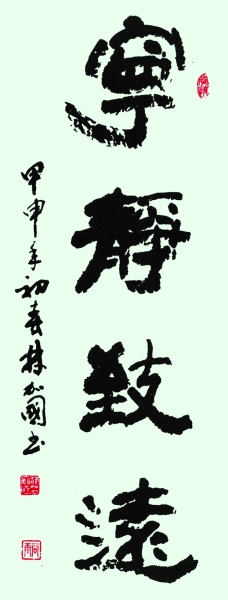 寧靜致遠
甲申年初春林加國书